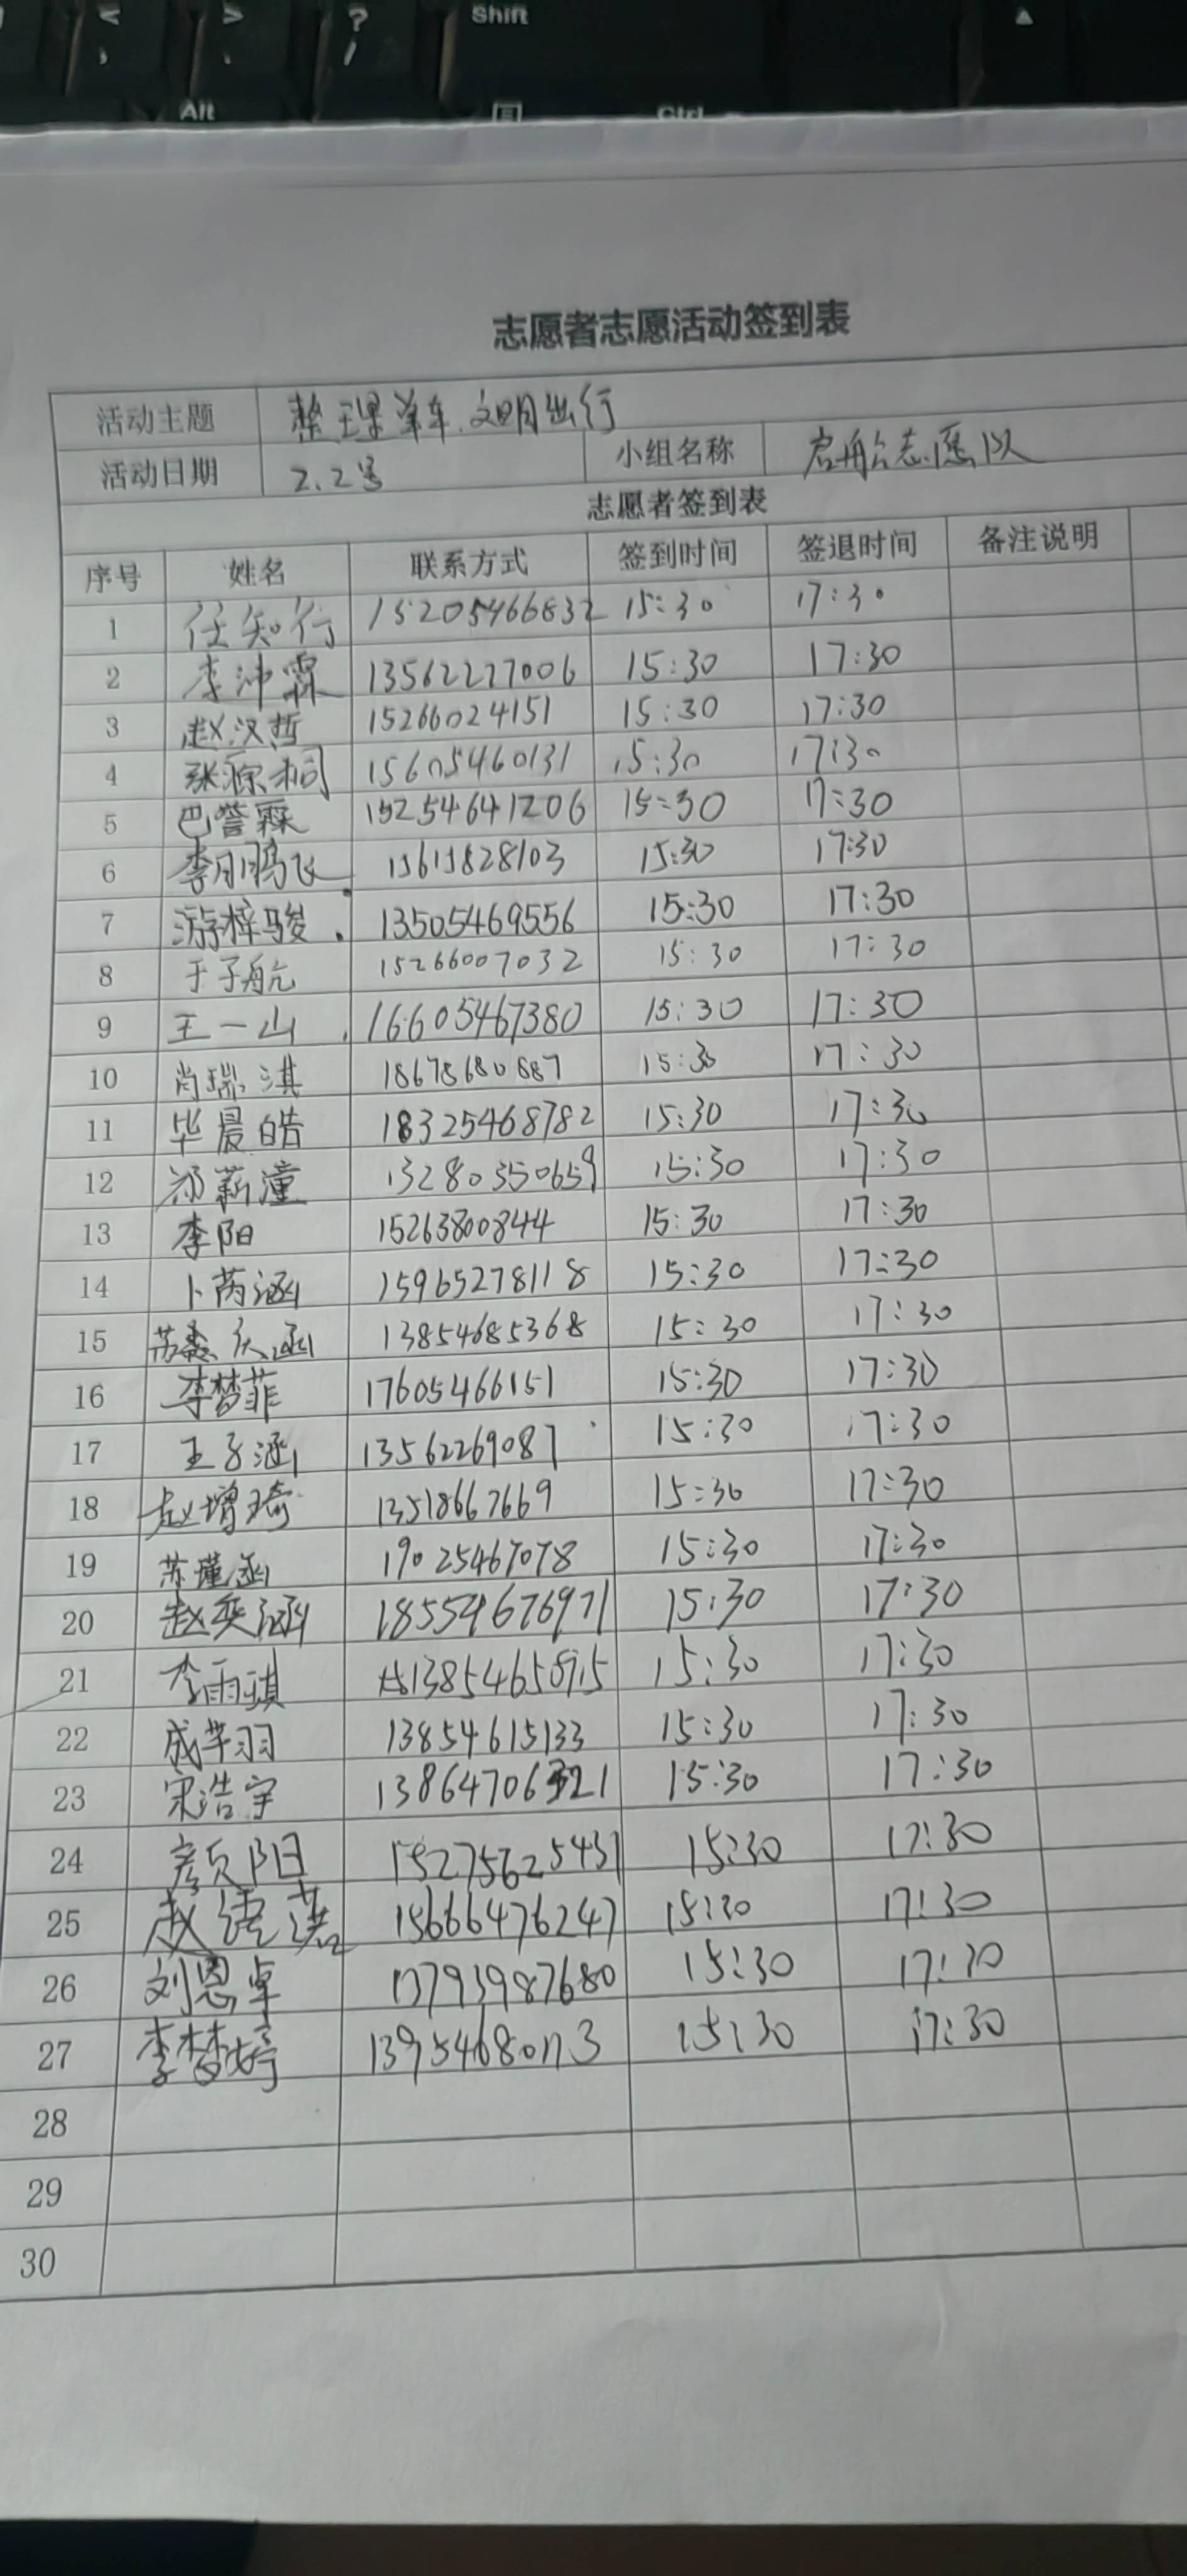 < , > . ? / Shift
Alt Ctrl
志愿者志愿活动签到表
活动主题 整理单车.文明出行
活动日期 2.2号 小组名称 启航志愿队
志愿者签到表
序号 姓名 联系方式 签到时间 签退时间 备注说明
1 任知行 15205466832 15:30 17:30
2 李沛霖 13562277006 15:30 17:30
3 赵汉哲 15266024151 15:30 17:30
4 张源桐 15605460131 15:30 17:30
5 巴誉霖 15254641206 15:30 17:30
6 李鹏飞 15615828103 15:30 17:30
7 游梓骏 13505469556 15:30 17:30
8 于子航 15266007032 15:30 17:30
9 王一山 16605467380 15:30 17:30
10 肖瑞淇 18678680887 15:30 17:30
11 毕晨皓 18325468782 15:30 17:30
12 薪潼 13280350659 15:30 17:30
13 李阳 15263800844 15:30 17:30
14 卜芮涵 15965278118 15:30 17:30
15 13854685368 15:30 17:30
16 李梦菲 17605466151 15:30 17:30
17 王子涵 13562269087 15:30 17:30
18 赵增琦 13518667669 15:30 17:30
19 苏瑾函 19025467078 15:30 17:30
20 赵奕涵 18554676971 15:30 17:30
21 李雨琪 15:30 17:30
22 成芊羽 13854615133 15:30 17:30
23 宋浩宇 13864706321 15:30 17:30
24 颜阳 15275625431 15:30 17:30
25 赵语诺 15666476247 15:30 17:30
26 刘恩卓 17793987680 15:30 17:30
27 李梦婷 13954680173 15:30 17:30
28
29
30